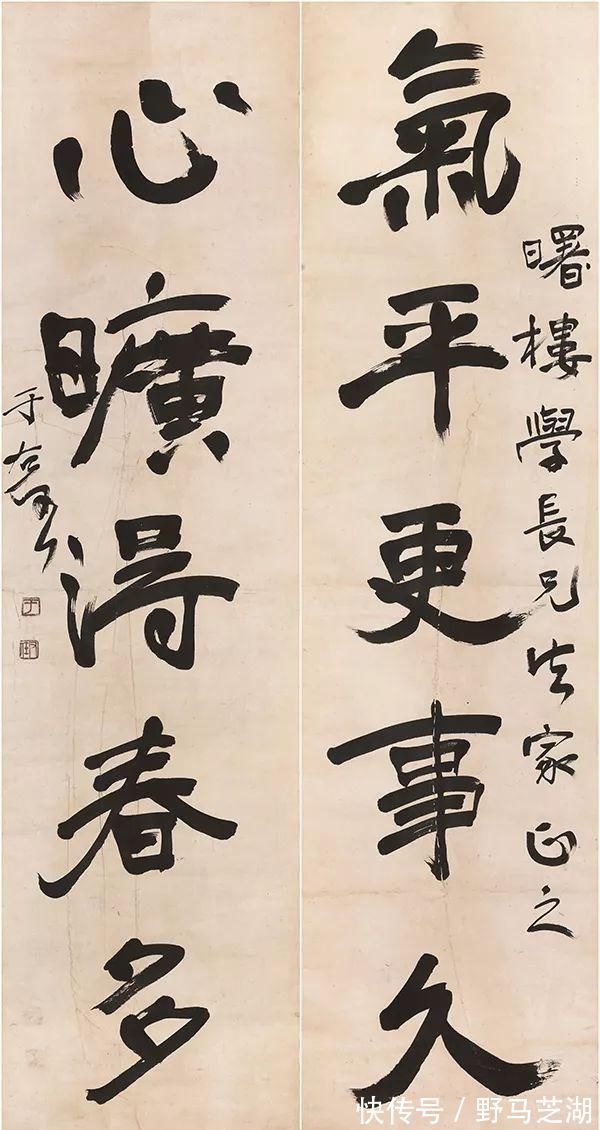 曙樓學長兄法家正之
氣平更事久
心曠得春多
于右任
快传号 / 野马芝湖